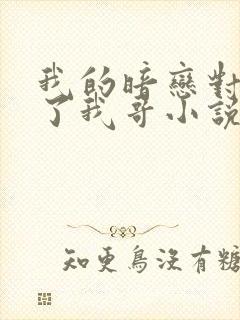 我的暗戀對
了我哥小說
知更鳥沒有糖